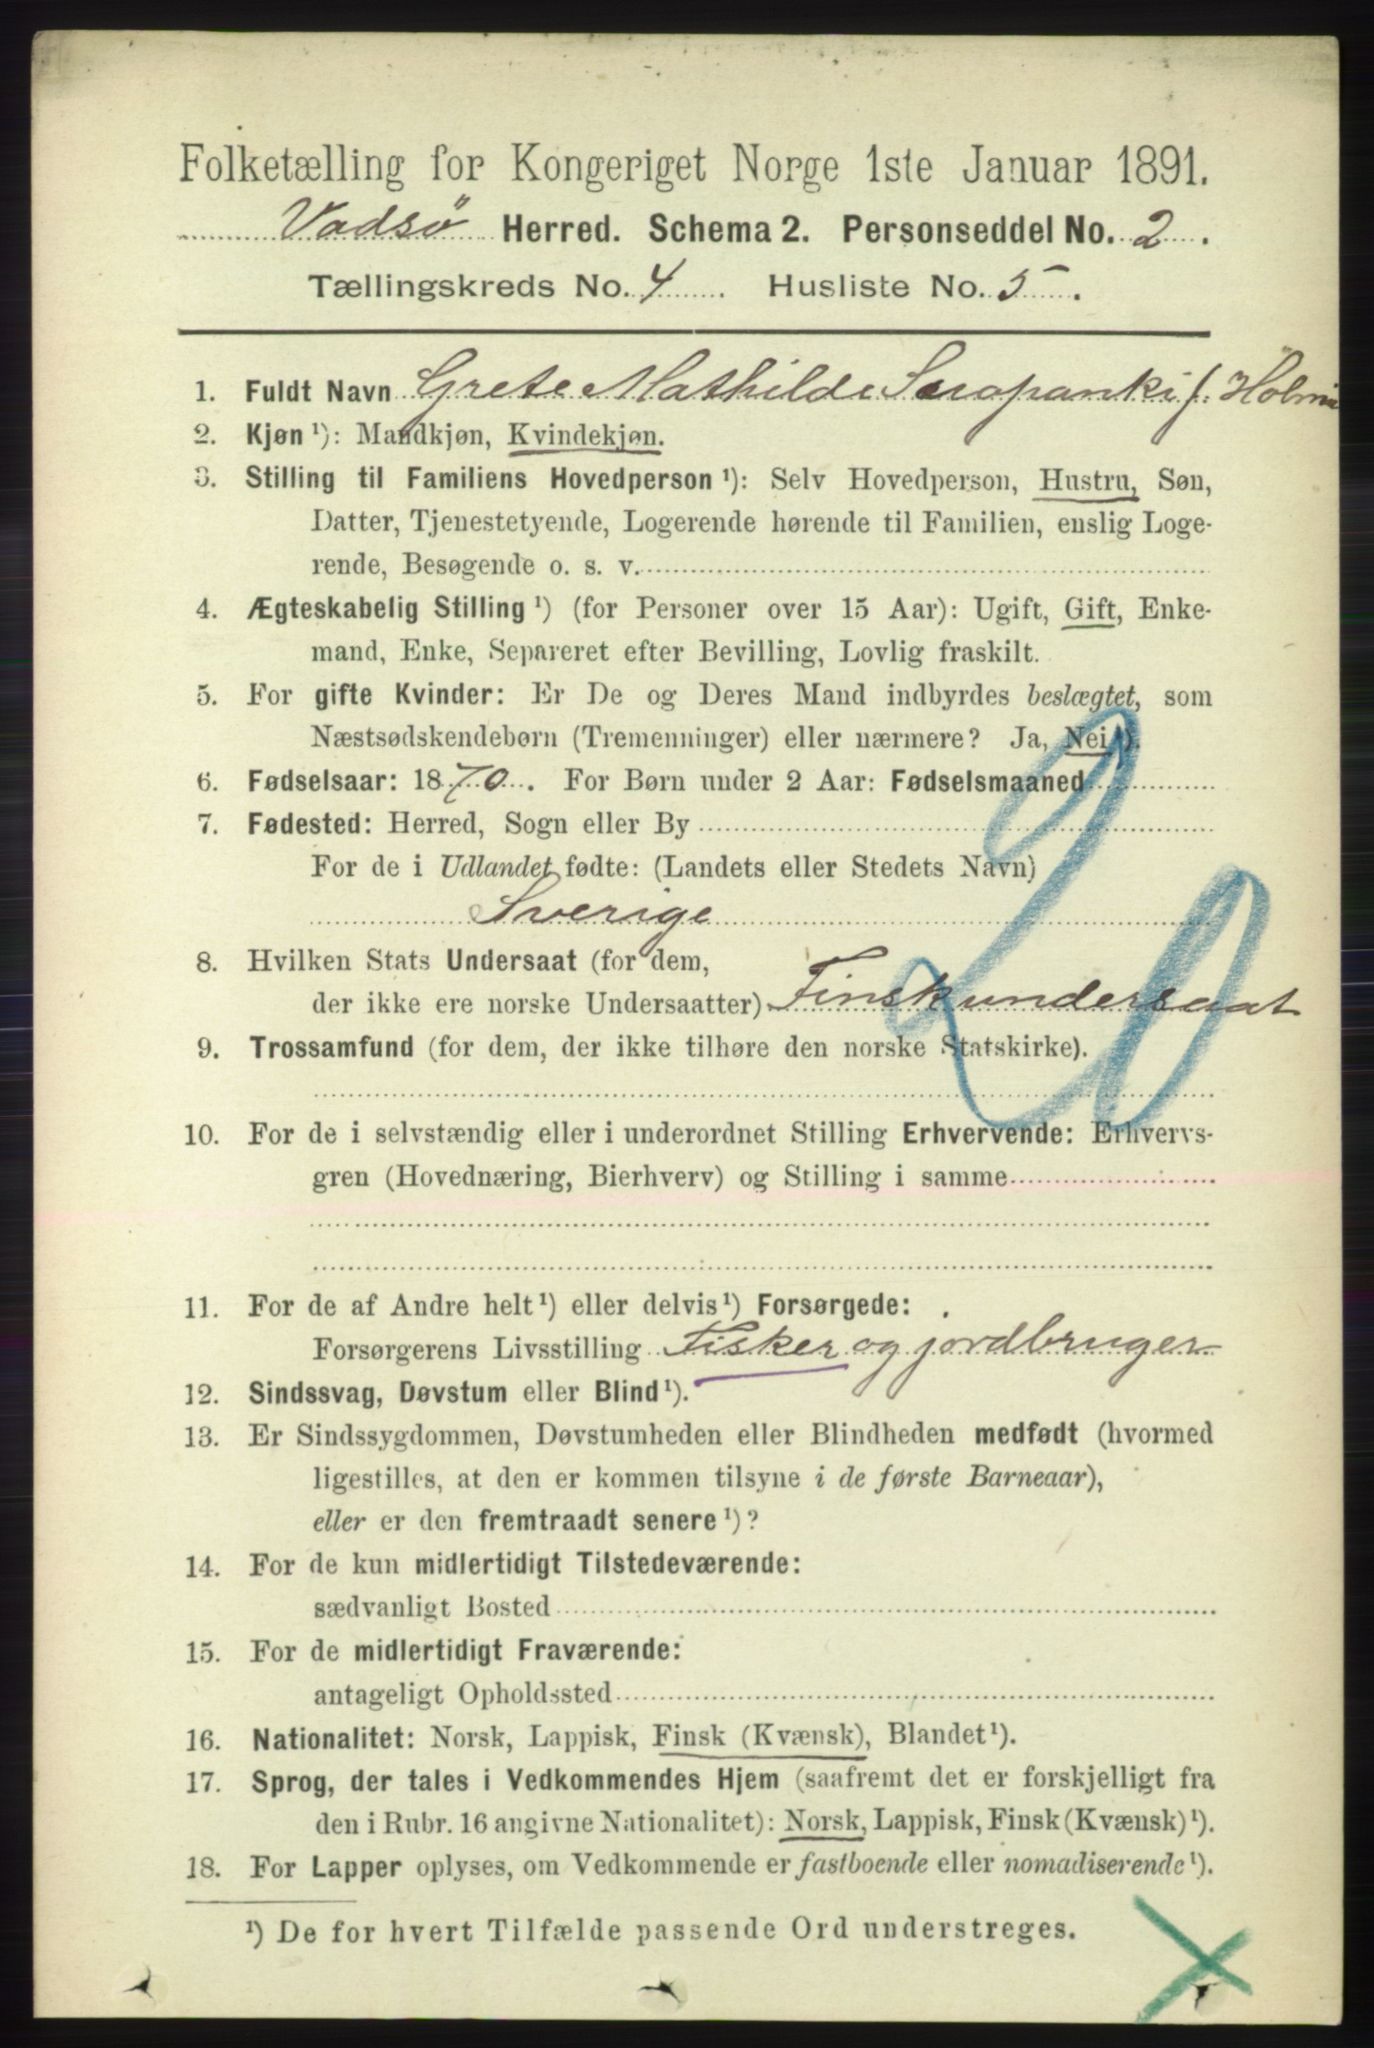 Folketælling for Kongeriget Norge 1ste Januar 1891.
Vadsö Herred. Schema 2. Personseddel No. 2.
Tællingskreds No. 4. Husliste No. 5.
1. Fuldt Navn Grete Mathilde f.
2. Kjøn¹): Mandkjøn, Kvindekjøn.
3. Stilling til Familiens Hovedperson¹): Selv Hovedperson, Hustru, Søn,
Datter, Tjenestetyende, Logerende hørende til Familien, enslig Loge-
rende, Besøgende o. s. v.
4. Ægteskabelig Stilling¹) (for Personer over 15 Aar): Ugift, Gift, Enke-
mand, Enke, Separeret efter Bevilling, Lovlig fraskilt.
5. For gifte Kvinder: Er De og Deres Mand indbyrdes beslægtet, som
Næstsødskendebørn (Tremenninger) eller nærmere? Ja, Nei¹).
6. Fødselsaar: 1870. For Børn under 2 Aar: Fødselsmaaned
7. Fødested: Herred, Sogn eller By
For de i Udlandet fødte: (Landets eller Stedets Navn)
Sverige
8. Hvilken Stats Undersaat (for dem,
der ikke ere norske Undersaatter) Finsk undersaat
9. Trossamfund (for dem, der ikke tilhøre den norske Statskirke).
10. For de i selvstændig eller i underordnet Stilling Erhvervende: Erhvervs-
gren (Hovednæring, Bierhverv) og Stilling i samme
11. For de af Andre helt¹) eller delvis¹) Forsørgede:
Forsørgerens Livsstilling Fisker og jordbruger
12. Sindssvag, Døvstum eller Blind¹).
13. Er Sindssygdommen, Døvstumheden eller Blindheden medfødt (hvormed
ligestilles, at den er kommen tilsyne i de første Barneaar),
eller er den fremtraadt senere¹)?
14. For de kun midlertidigt Tilstedeværende:
sædvanligt Bosted
15. For de midlertidigt Fraværende:
antageligt Opholdssted
16. Nationalitet: Norsk, Lappisk, Finsk (Kvænsk), Blandet¹).
17. Sprog, der tales i Vedkommendes Hjem (saafremt det er forskjelligt fra
den i Rubr. 16 angivne Nationalitet): Norsk, Lappisk, Finsk (Kvænsk)¹).
18. For Lapper oplyses, om Vedkommende er fastboende eller nomadiserende¹).
¹) De for hvert Tilfælde passende Ord understreges.